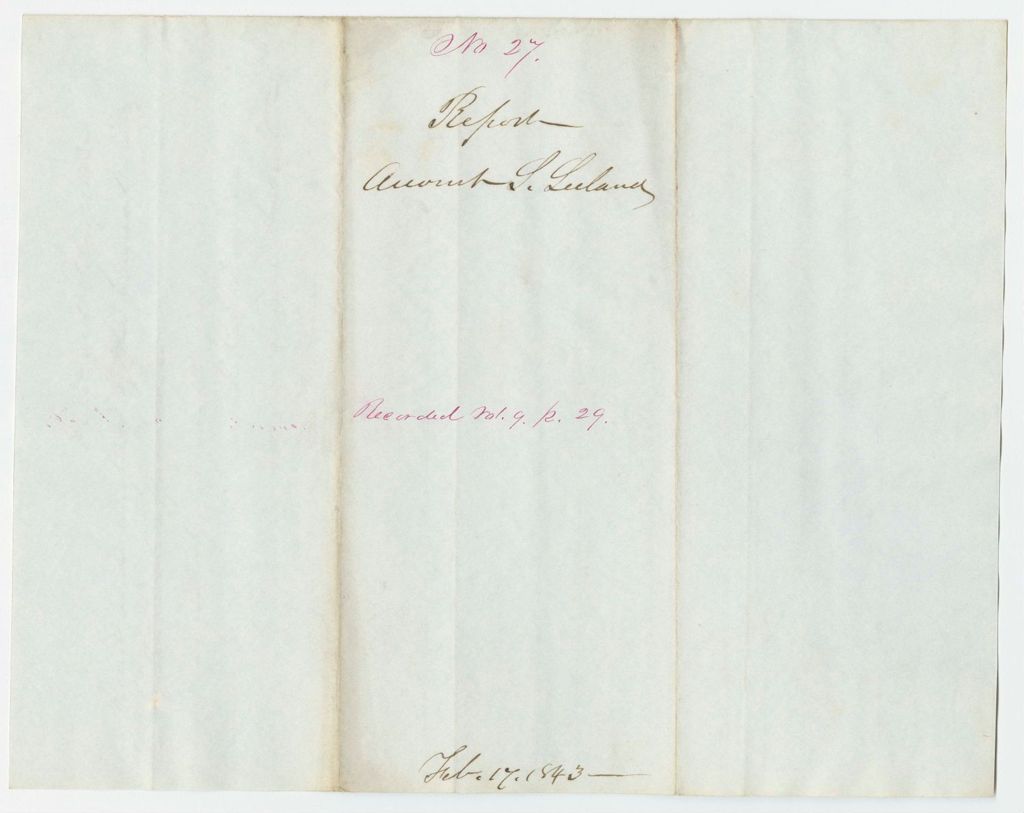 No 27.
Report
Account S. Leland
Recorded Vol. 9. p. 29.
Feb. 17. 1843